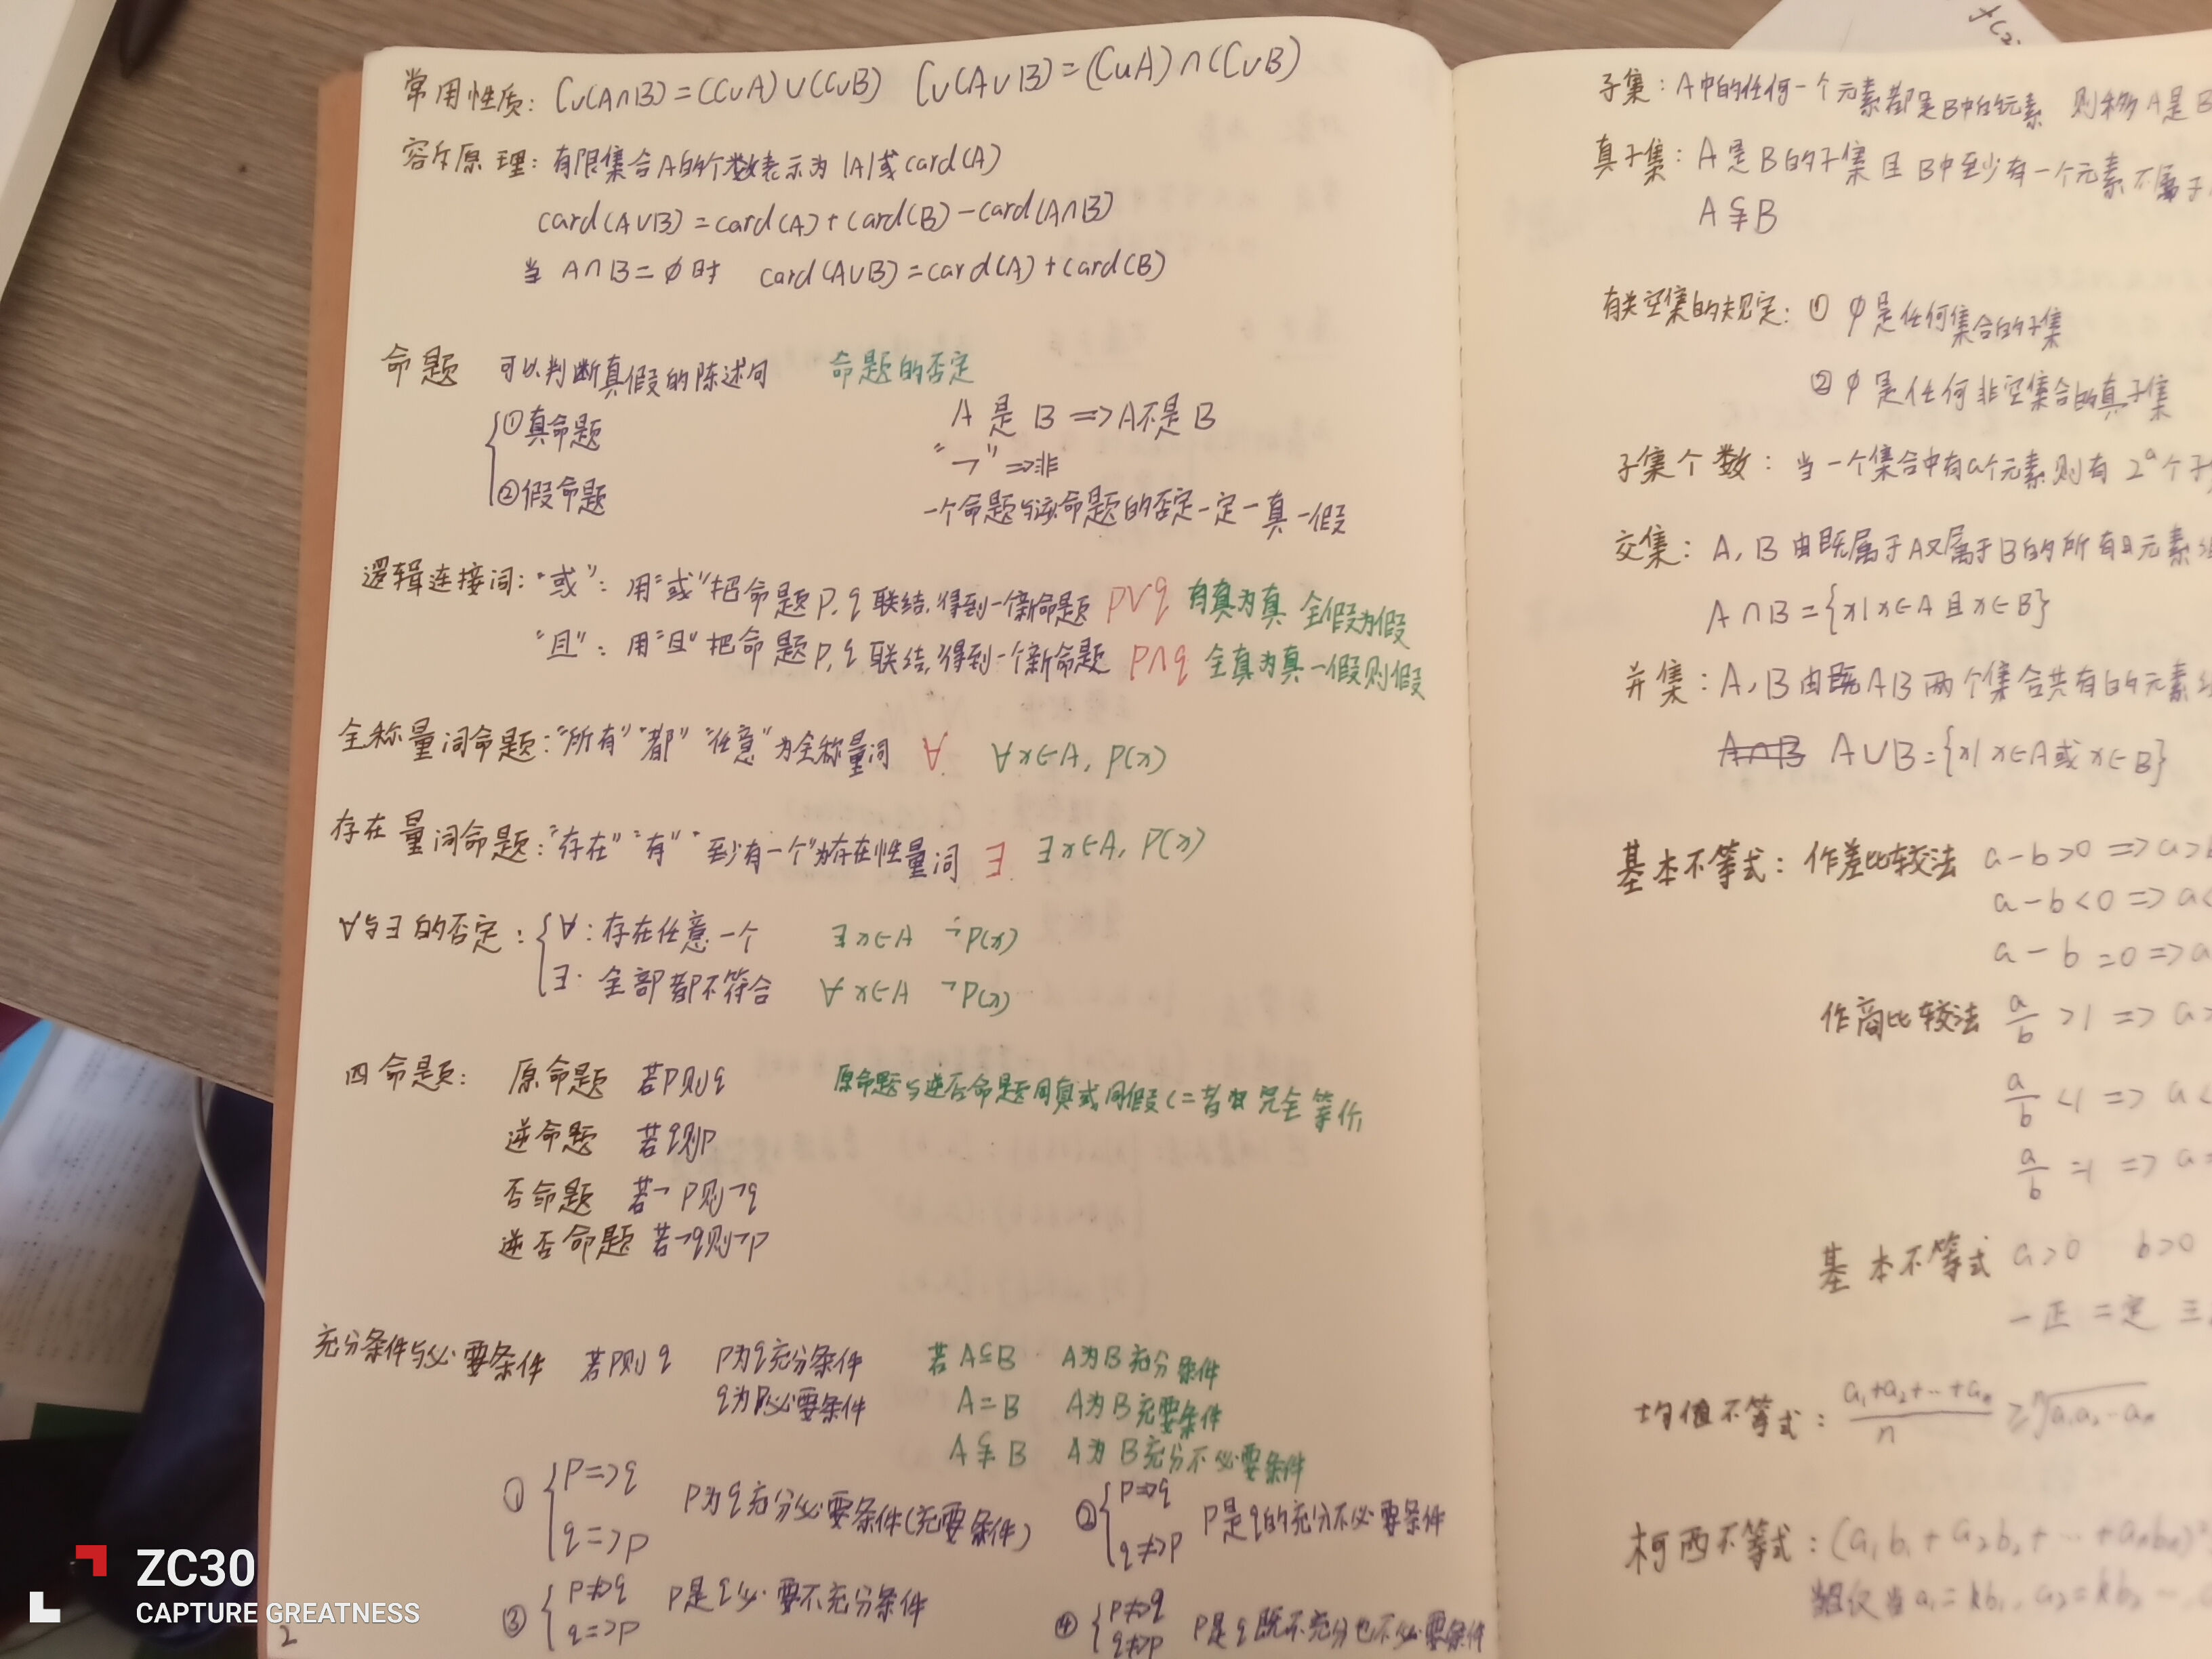 常用性质: ∁U(A∩B)=(∁UA)∪(∁UB) ∁U(A∪B)=(∁UA)∩(∁UB)
容斥原理: 有限集合A的个数表示为 |A|或card(A)
card(A∪B)=card(A)+card(B)-card(A∩B)
当 A∩B=∅时 card(A∪B)=card(A)+card(B)
命题 可以判断真假的陈述句 命题的否定
①真命题 A 是 B => A不是 B
“¬” =>非
②假命题
一个命题与该命题的否定一定一真一假
逻辑连接词: “或”: 用“或”把命题p,q联结,得到一个新命题 p∨q 有真为真 全假为假
“且”: 用“且”把命题p,q联结,得到一个新命题 p∩q 全真为真 一假则假
全称量词命题: “所有” “都” “任意”为全称量词 ∀ ∀x∈A, p(x)
存在量词命题: “存在” “有” “至少有一个”为存在性量词 ∃ ∃x∈A, P(x)
∀与∃的否定: ∀: 存在任意一个 ∃x∈A ¬p(x)
∃: 全部都不符合 ∀x∈A ¬p(x)
四命题: 原命题 若p则q 原命题与逆否命题同真或同假(二者 完全等价
逆命题 若q则p
否命题 若¬p则¬q
逆否命题 若¬q则¬p
充分条件与必要条件 若p则q p为q充分条件 若A⊆B A为B充分条件
q为p必要条件 A=B A为B充要条件
A⫋B A为B充分不必要条件
① p=>q
q=>p
p为q充分必要条件(充要条件)
② p=>q
q≠>p
p是q的充分不必要条件
③ p≠>q
q=>p
p是q必要不充分条件
④ p≠>q
q≠>p
p是q既不充分也不必要条件
2
子集: A中的任何一个元素都是B中的元素 则称A是B
真子集: A是B的子集且B中至少有一个元素不属于
A⫋B
有关空集的规定: ① ∅是任何集合的子集
② ∅是任何非空集合的真子集
子集个数: 当一个集合中有a个元素则有 2^a个子
交集: A,B由既属于A又属于B的所有元素
A∩B={x|x∈A且x∈B}
并集: A,B由既AB两个集合共有的元素
A∩B A∪B={x|x∈A或x∈B}
基本不等式: 作差比较法 a-b>0 => a>b
a-b<0 => a<
a-b=0 => a
作商比较法 a/b >1 => a>
a/b <1 => a<
a/b =1 => a=
基本不等式 a>0 b>0
一正 二定 三
均值不等式: (a₁+a₂+…+aₙ)/n ≥ ⁿ√(a₁a₂…aₙ)
柯西不等式: (a₁b₁+a₂b₂+…+aₙbₙ)²
当且仅当 a₁=kb₁, a₂=kb₂ …
ZC30
CAPTURE GREATNESS